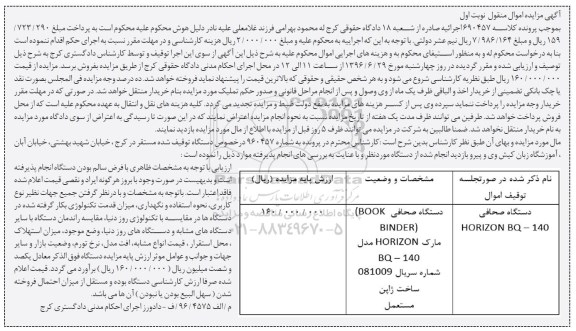 آگهی مزایده اموال منقول نوبت اول
بموجب پرونده کلاسه ۶۹۰۴۵۷ اجرائیه صادره از شعبه ۱۸ دادگاه حقوقی کرج له محمود بهرامی فرزند غلامعلی علیه نادر دلیل هوش محکوم علیه محکوم است به پرداخت مبلغ ۷۲۳/۲۹۰/
۱۵۹ ریال و مبلغ ۷/۹۸۶/۱۶۴ ریال نیم عشر دولتی. با توجه به این که اجراییه به محکوم علیه و مبلغ ۲/۰۰۰/۰۰۰ ریال هزینه کارشناسی و در مهلت مقرر نسبت به اجرای حکم اقدام ننموده است
بنا به درخواست محکوم له و به منظور استیفای محکوم به و هزینه های اجرایی اموال محکوم علیه به شرح ذیل این آگهی از سوی این اجرا توقیف و توسط کارشناس دادگستری کرج به شرح ذیل
توصیف و ارزیابی شده و مقرر گردیده در روز چهارشنبه مورخ ۱۳۹۶/۶/۲۹ از ساعت ۱۱ الی ۱۲ در محل اجرای احکام مدنی دادگاه حقوقی کرج از طریق مزایده بفروش برسد. مزایده از قیمت
۱۶۰/۰۰۰/۰۰۰ ریال طبق نظریه کارشناسی شروع می شود و به هر شخص حقیقی و حقوقی که بالاترین قیمت را پیشنهاد نماید فروخته خواهد شد. ده درصد وجه مزایده فی المجلس بصورت نقد
یا چک بانکی تضمینی از خریدار اخذ و الباقی ظرف یک ماه از وی وصول و پس از انجام مراحل قانونی و صدور حکم تملیک مورد مزایده بنام خریدار منتقل خواهد شد. در صورتی که در مهلت مقرر
خریدار وجه مزایده را پرداخت ننماید سپرده وی پس از کسر هزینه های مزایده به نفع دولت ضبط و مزایده تجدید می گردد. کلیه هزینه های نقل و انتقال به عهده محکوم علیه است که از محل
فروش پرداخت خواهد شد. طرفین می توانند ظرف مدت یک هفته از تاریخ فروش نسبت به نحوه انجام مزایده اعتراض نمایند که در این صورت تا رسیدگی به اعتراض از سوی دادگاه مورد مزایده
به نام خریدار منتقل نخواهد شد. ضمنا طالبین به شرکت در مزایده می توانند ظرف ۵ روز قبل از مزایده با اطلاع از مال مورد مزایده بازدید نمایند.
مال مورد مزایده و بهای آن طبق نظر کارشناس بدین شرح است: کارشناس محترم در پرونده به شماره ۹۶۰۴۵۷ درخصوص دستگاه توقیف شده مستقر در کرج، خیابان شهید بهشتی، خیابان آبان
، آموزشگاه زبان کیش وی و پیرو بازدید انجام شده از دستگاه موردنظر و با عنایت به بررسی های انجام پذیرفته موارد ذیل را نموده است :
نام ذکر شده در صورتجلسه توقیف اموال | مشخصات و وضعیت | ارزش پایه مزایده (ریال)
دستگاه صحافی HORIZON BQ – 140 | دستگاه صحافی (BOOK BINDER) | ۱۶۰/۰۰۰/۰۰۰
مارک HORIZON مدل
BQ – 140
شماره سریال 081009
ساخت ژاپن
مستعمل
ارزیابی با توجه به مشخصات ظاهری با فرض سالم بودن دستگاه انجام پذیرفته
است و بدیهیست در صورت وجود یا بروز هرگونه ایراد و نقصی قیمت اعلام شده
فاقد اعتبار است. باتوجه به مشخصات و با در نظر گرفتن جمیع جهات نظیر نوع
کاربری، نحوه استفاده و نگهداری، میزان قدمت تکنولوژی بکار گرفته شده در
دستگاه ها در مقایسه با تکنولوژی روز دنیا، مقایسه راندمان دستگاه با سایر
دستگاه های مشابه و دستگاه های روز دنیا، وضع موجود، میزان استهلاک
، محل استقرار ، قیمت انواع مشابه، افت مدل، نرخ تورم، وضعیت بازار و سایر
جهات و جوانب و عوامل موثر ارزش پایه مزایده دستگاه فوق الذکر معادل یکصد
و شصت میلیون ریال (۱۶۰/۰۰۰/۰۰۰ ریال) برآورد می گردد. قیمت اعلام
شده صرفا ارزش کارشناسی دستگاه بوده و مستقل از میزان احتمال فروخته
شدن ( سهل البیع بودن یا نبودن ) آن ها می باشد.
م /الف ۹۶/۴۵۷۵/ف - دادورز اجرای احکام مدنی دادگستری کرج
۰۲۱-۸۸۳۴۹۶۷۰-۵